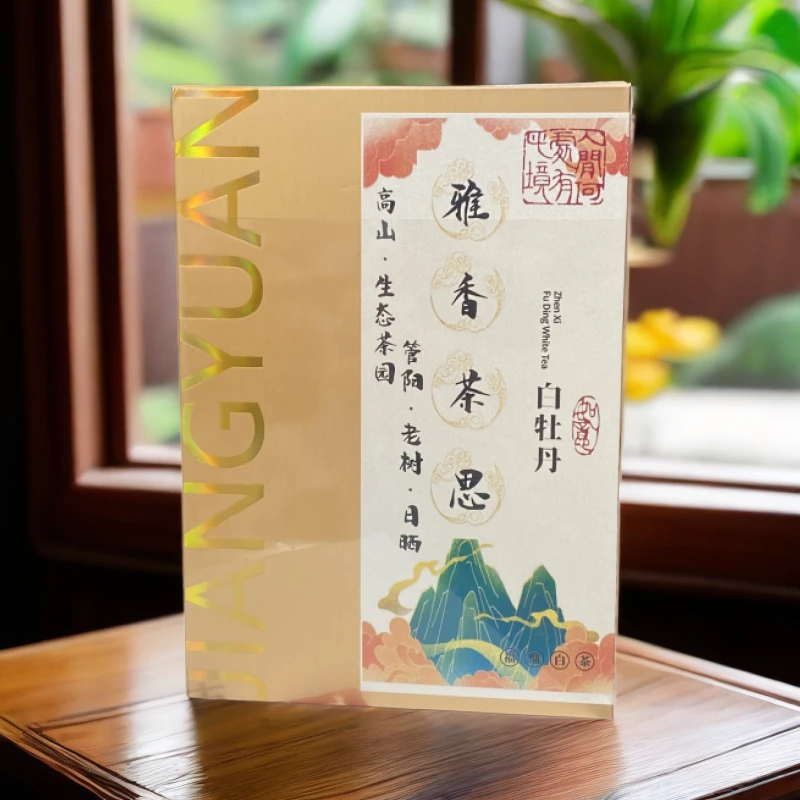 JIANGYUAN
人間何處有此境
雅香茶思
高山·生态茶园
管阳·老树·日晒
Zhen Xi
Fu Ding White Tea
白牡丹
如意
福鼎白茶